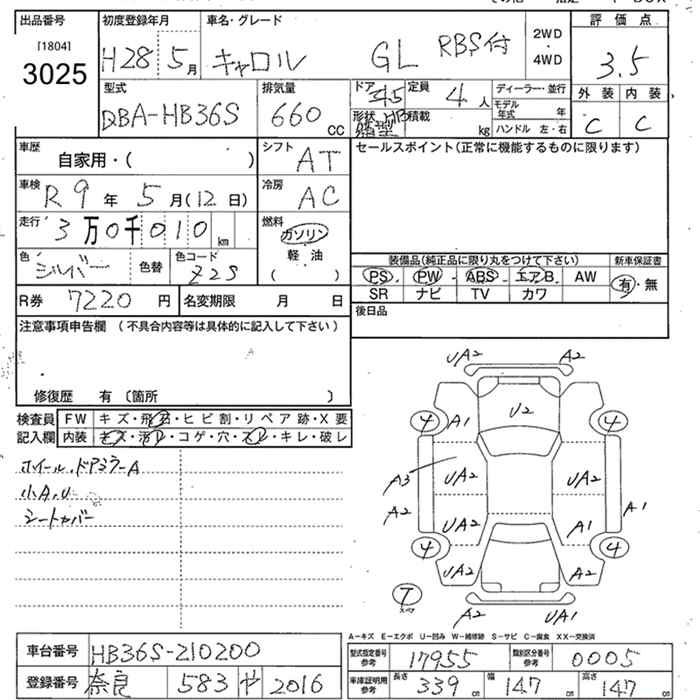 出品番号
[1804]
3025
初度登録年月
H28 5月
車名・グレード
キャロル GL RBS付
2WD・4WD
評価点
3.5
外装 内装
C C
型式
DBA-HB36S
排気量
660 CC
ドア 形状
定員 4人
積載 kg
ディーラー・並行
モデル年式 年
ハンドル 左・右
車歴
自家用・( )
シフト AT
車検
R9年5月(12日)
冷房 AC
走行
3万0千010km
燃料
ガソリン
軽油
( )
色
シルバー
色替
色コード
Z2S
R券 7220円
名変期限 月 日
セールスポイント(正常に機能するものに限ります)
装備品(純正品に限り丸をつけて下さい)
新車保証書
PS・PW・ABS・エアB・AW
SR ナビ TV カワ
有・無
後日品
注意事項申告欄 (不具合内容等は具体的に記入して下さい)
修復歴 有〔箇所 〕
検査員記入欄
FW キズ・飛石・ヒビ割・リペア跡・X要
内装 キズ・汚レ・コゲ・穴・スレ・キレ・破レ
ホイール、ドアミラーA
小A、U
シートカバー
UA2 A2
4 A1 U2 4
A3 UA2 UA2
A2 A1
UA2 A1
4 UA2 A2 4
T
スペア
A2 UA1
A-キズ E-エクボ U-凹み W-補修跡 S-サビ C-腐食 XX-交換済
車台番号 HB36S-210200
登録番号 奈良 583 や 2016
型式指定番号 参考 17955
類別区分番号 参考 0005
車庫証明用 参考
長さ 339cm
幅 147cm
高さ 147cm